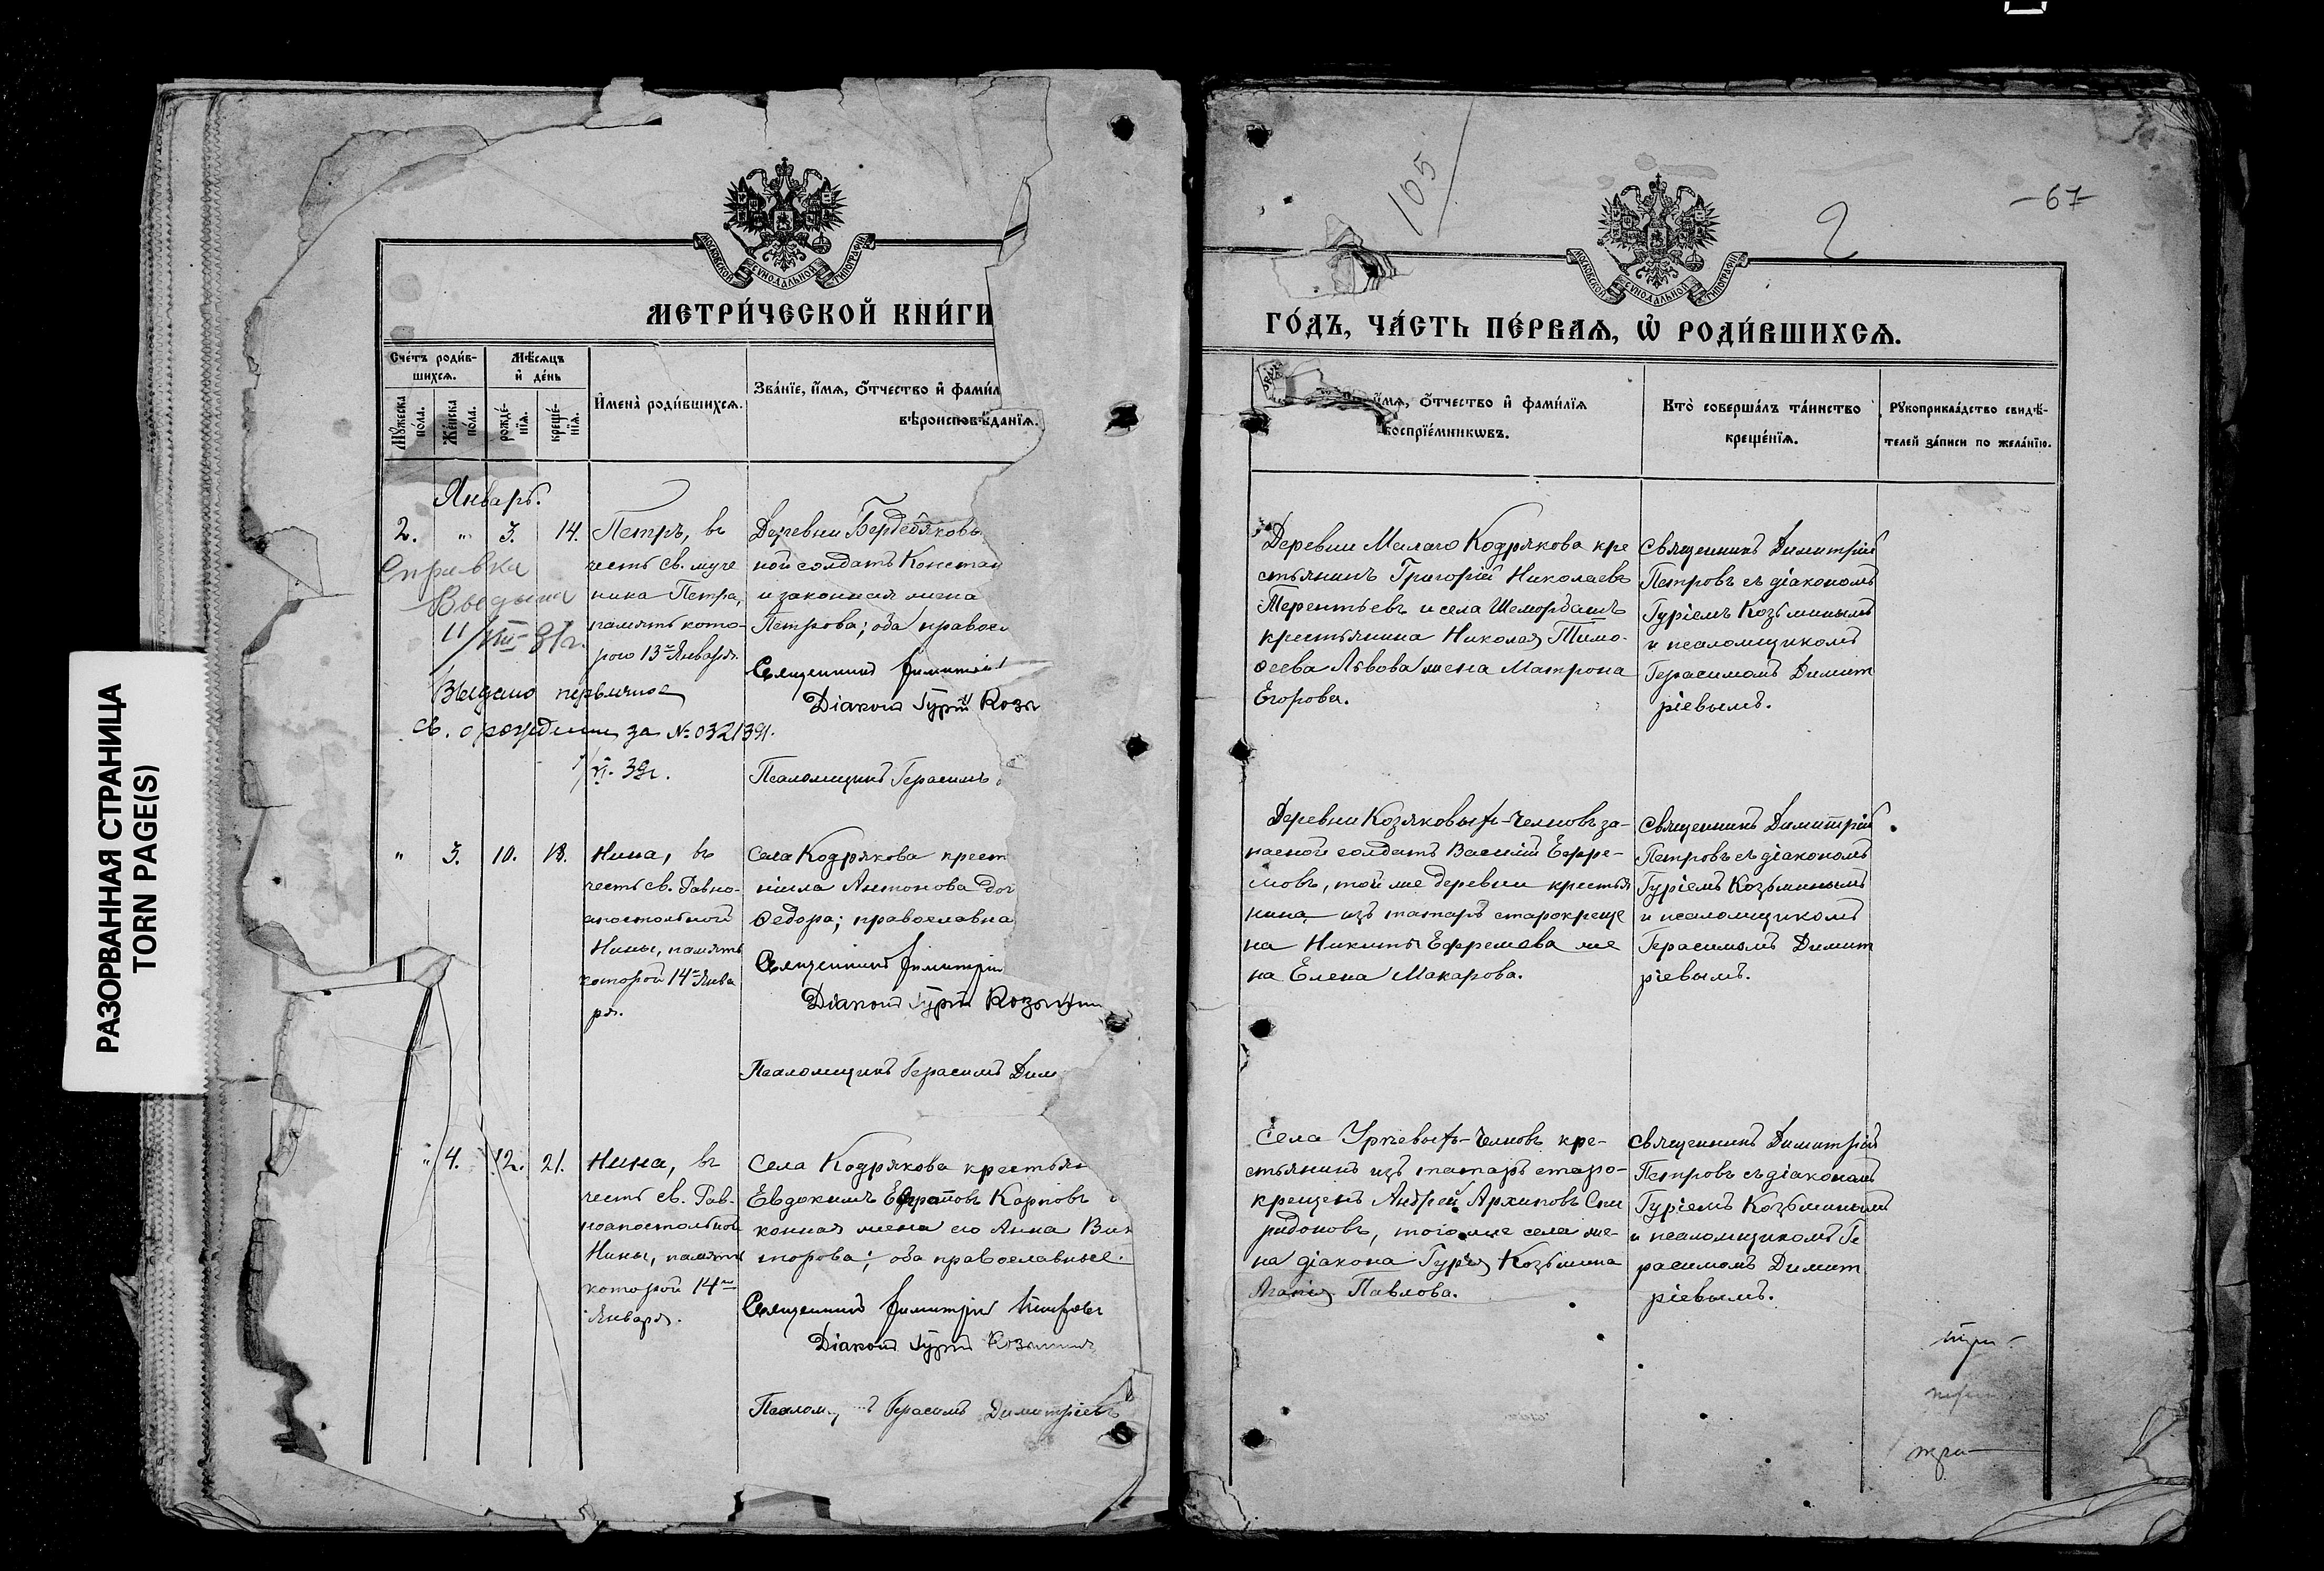 РАЗОРВАННАЯ СТРАНИЦА
TORN PAGE(S)
МОСКОВСКОЙ СУНОДАЛЬНОЙ ТИПОГРАФІИ
МЕТРИ́ЧЕСКОЙ КНИ́ГИ
Сче́тъ роди́в-
шихсѧ.
Мѣ́сѧцъ
и҆ де́нь
И҆мена̀ роди́вшихсѧ.
Зва́нїе, и҆́мѧ, ѻ҆́тчество и҆ фами́л
вѣроисповѣ́данїѧ.
Мꙋ́жеска
по́ла.
Же́нска
по́ла.
рожде́-
нїѧ.
креще́-
нїѧ.
Январь.
2.
"
3.
14.
Петръ, въ
честь св. муче
ника Петра,
память кото-
раго 13го Января.
Деревни Бердебяковы
ной солдатъ Констан
и законная жена
Петрова; оба правосл
Священникъ Димитрій
Діаконъ Гурій Козь
Псаломщикъ Герасимъ
Справка
Выдана
11/VIII-31г.
Выдано первичное
св. о рождении за №0321391.
VI. 39г.
"
3.
10.
18.
Нина, въ
честь св. Равно-
апостольной
Нины, память
которой 14го Янва
ря.
Села Кодрякова крест
нила Антонова доч
Ѳедора; православна
Священникъ Димитрій
Діаконъ Гурій Козьмин
Псаломщикъ Герасимъ Дим
"
4.
12.
21.
Нина, въ
честь св. Рав-
ноапостольной
Нины, память
которой 14го
Января.
Села Кодрякова крестьян
Евдокимъ Карповъ
конная жена его Анна Вик
торова; оба православные.
Священникъ Димитрій Петровъ
Діаконъ Гурій Козьминъ
Псалом ъ Герасимъ Димитріевъ
105
2
-67-
МОСКОВСКОЙ СУНОДАЛЬНОЙ ТИПОГРАФІИ
ГО́ДЪ, ЧА́СТЬ ПЕ́РВАѦ, Ѽ РОДИ́ВШИХСѦ.
и҆́мѧ, ѻ҆́тчество и҆ фами́лїѧ
воспрїе́мникѡвъ.
Кто̀ соверша́лъ та́инство
креще́нїѧ.
Рꙋкоприкла́дство свидѣ́-
телей за́писи по жела́нїю.
Деревни Малаго Кодрякова кре
стьянинъ Григорій Николаевъ
Терентьевъ и села Шемордашъ
крестьянина Николая Тимо-
ѳеева Львова жена Матрона
Егорова.
Священникъ Димитрій
Петровъ съ діакономъ
Гуріемъ Козьминымъ
и псаломщикомъ
Герасимомъ Димит
ріевымъ.
Деревни Козяковыхъ-Челновъ за-
пасной солдатъ Василій Ефре-
мовъ, той же деревни крестья
нина изъ татаръ старокреще
на Никиты Ефремова же
на Елена Макарова.
Священникъ Димитрій
Петровъ съ діакономъ
Гуріемъ Козьминымъ
и псаломщикомъ
Герасимомъ Димит
ріевымъ.
Села Уркевыхъ-Челновъ кре-
стьянинъ изъ татаръ старо-
крещенъ Андрей Архиповъ Спи
ридоновъ, того же села же-
на діакона Гурія Козьмина
Агапія Павлова.
Священникъ Димитрій
Петровъ съ діакономъ
Гуріемъ Козьминымъ
и псаломщикомъ Ге
расимомъ Димит
ріевымъ.
три
три